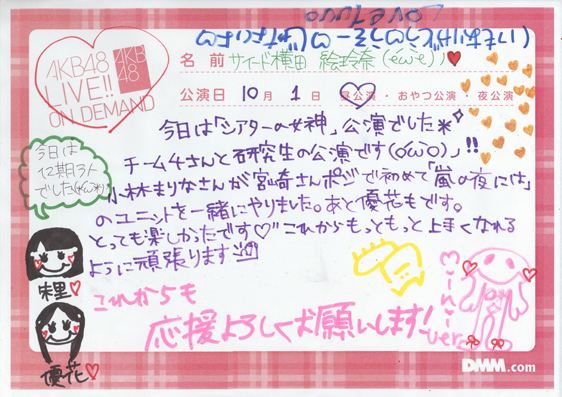 いつもありがとう♡
Love Tuvo
AKB48
LIVE!!
ON DEMAND
AKB
48
名前 サイード横田 絵玲奈(• ω •)ノ♥
公演日 10月 1日 昼公演・おやつ公演・夜公演
今日は「シアターの女神」公演でした*✧
チーム4さんと研究生の公演です(• ω •)ノ!!
今日は
12期3人
でした(• ω •)
小林まりなさんが宮崎さんポジで初めて「嵐の夜には」
のユニットを一緒にやりました。あと優花もです。
とっても楽しかったです♡"これからもっともっと上手くなれる
ように頑張ります
朱里♡
優花♡
これからも
応援よろしくお願いします!
ver
DMM.com